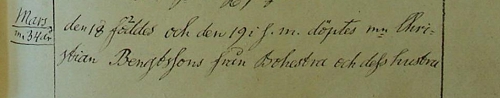 Mars
m. 34 år
den 18 föddes och den 19 i s. m. döptes mn Chri-
stian Bengtssons från Bohestra och dess hustru